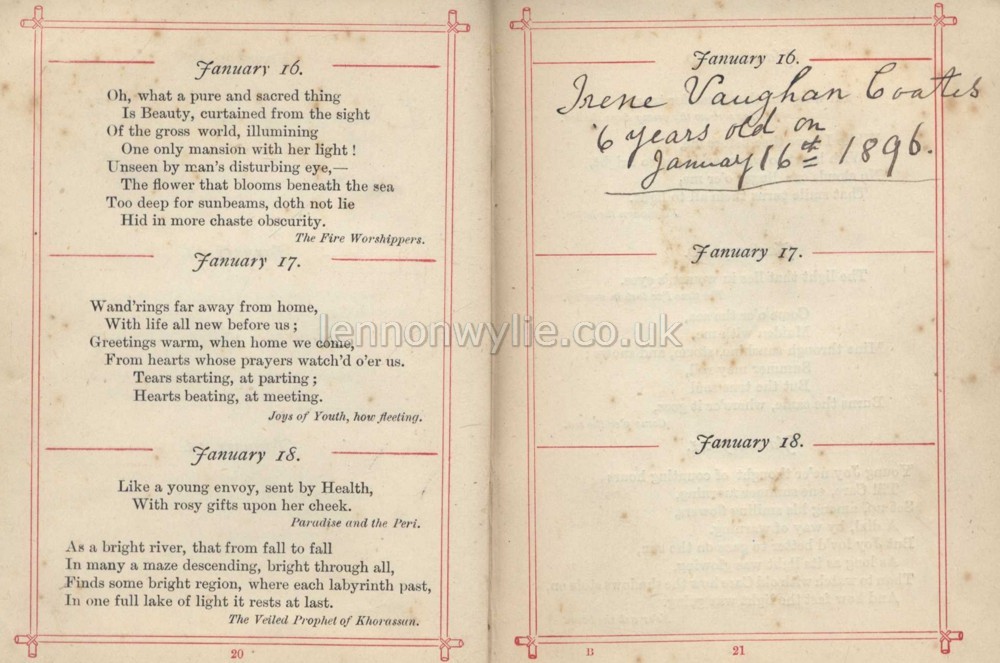 January 16.
Oh, what a pure and sacred thing
Is Beauty, curtained from the sight
Of the gross world, illumining
One only mansion with her light!
Unseen by man's disturbing eye,—
The flower that blooms beneath the sea
Too deep for sunbeams, doth not lie
Hid in more chaste obscurity.
The Fire Worshippers.
January 17.
Wand'rings far away from home,
With life all new before us;
Greetings warm, when home we come,
From hearts whose prayers watch'd o'er us.
Tears starting, at parting;
Hearts beating, at meeting.
Joys of Youth, how fleeting.
January 18.
Like a young envoy, sent by Health,
With rosy gifts upon her cheek.
Paradise and the Peri.
As a bright river, that from fall to fall
In many a maze descending, bright through all,
Finds some bright region, where each labyrinth past,
In one full lake of light it rests at last.
The Veiled Prophet of Khorassan.
20
January 16.
Irene Vaughan Coates
6 years old on
January 16th 1896.
January 17.
January 18.
B
21
lennonwylie.co.uk